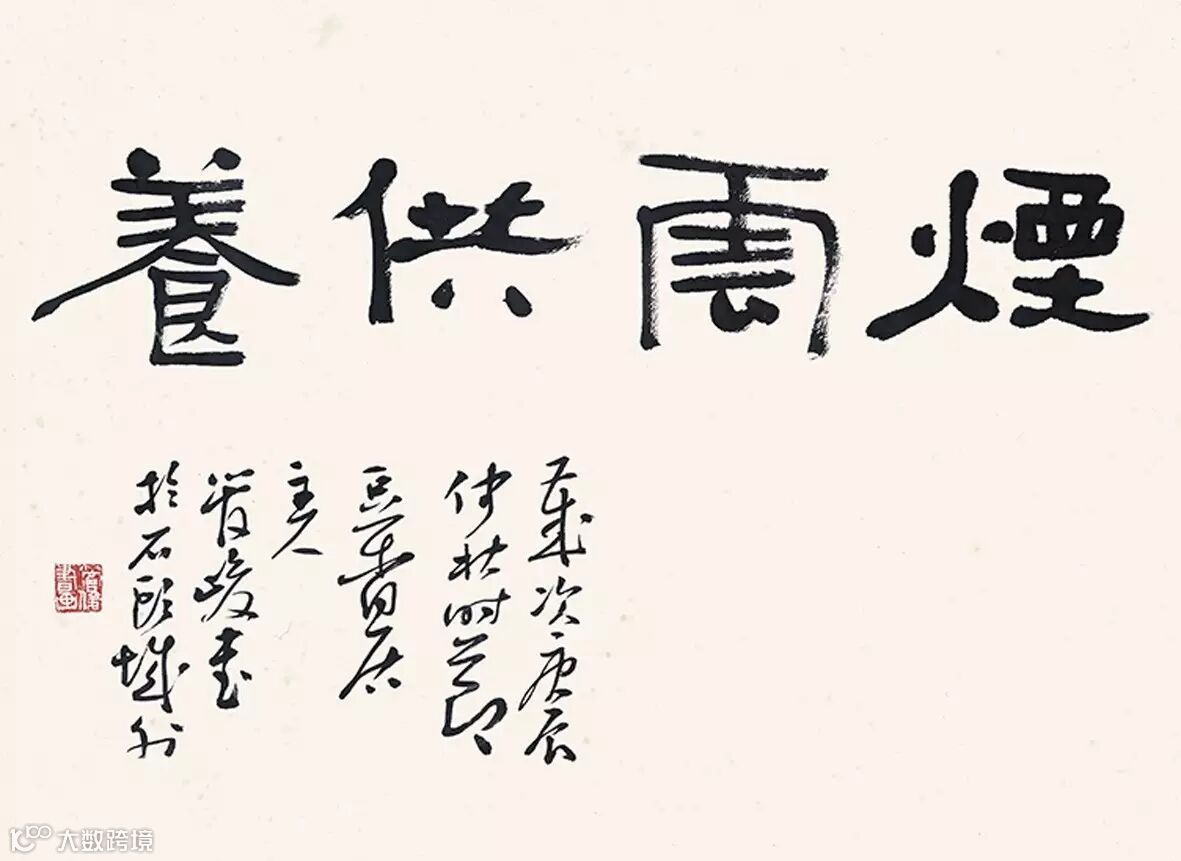 煙雲供養
歲次庚辰
仲秋時節
豆香居
主人
管峻書
於石頭城外
大数跨境